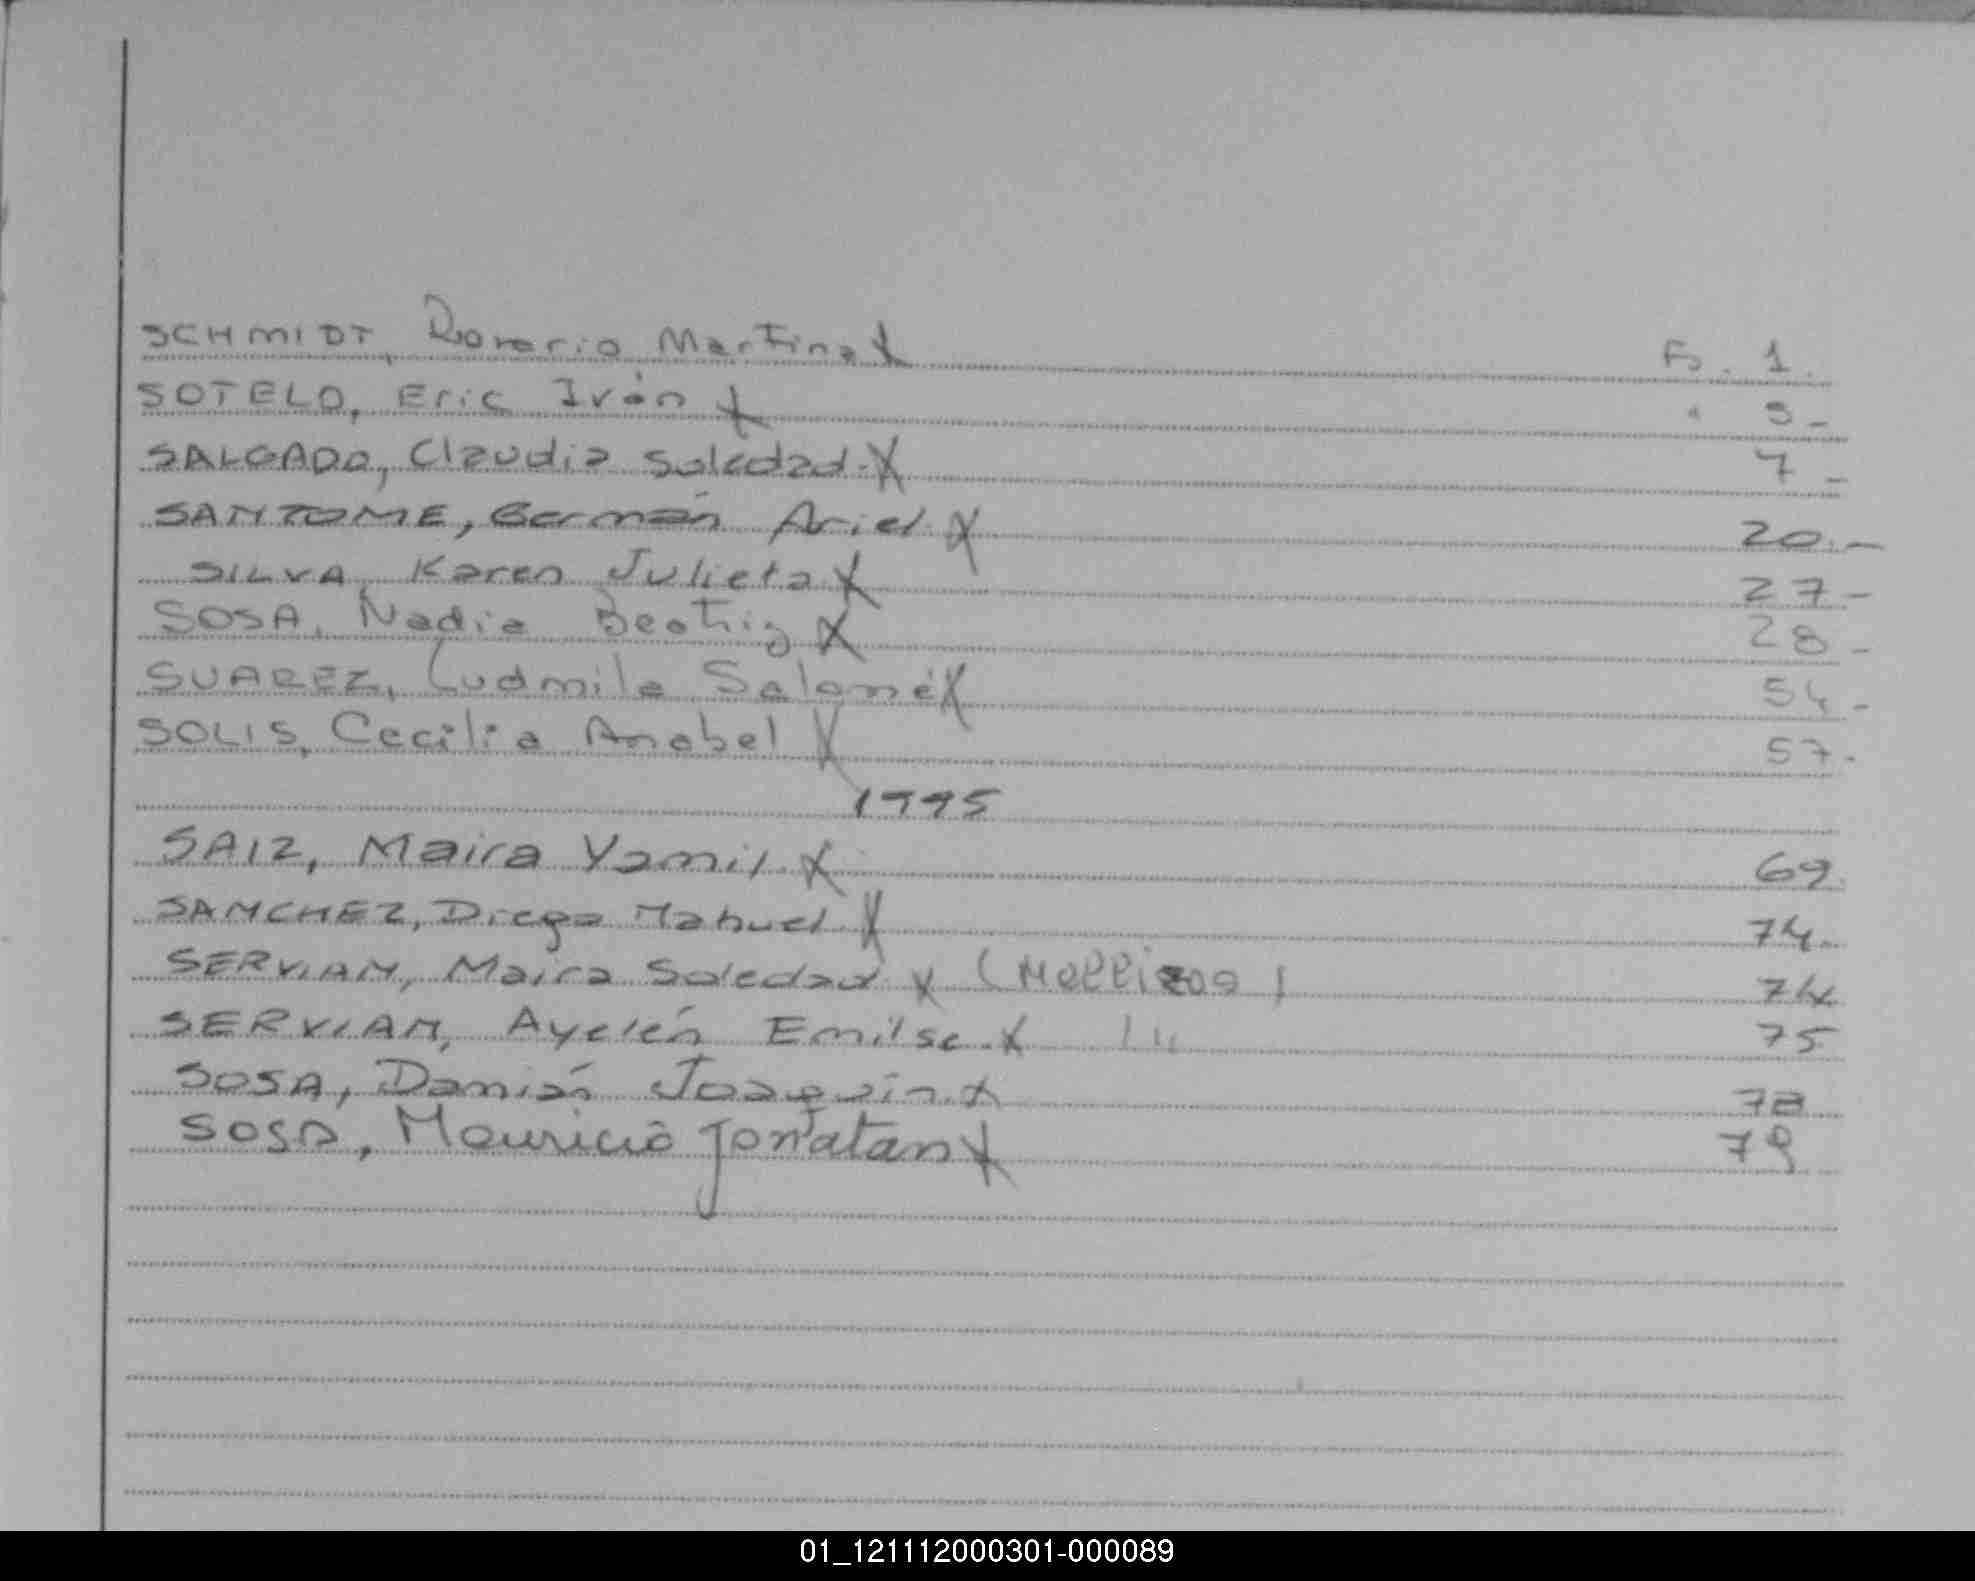 SCHMIDT, Rosario Martina X Fo. 1.
SOTELO, Eric Iván X " 5-
SALGADO, Claudia Soledad.X 7-
SANTOME, Germán Ariel.X 20.-
SILVA, Karen Julieta X 27-
SOSA, Nadia Beatriz X 28-
SUAREZ, Ludmila Salomé X 54-
SOLIS, Cecilia Anabel X 57.
1995
SAIZ, Maira Yamil.X 69.
SANCHEZ, Diego Nahuel X 74.
SERVIAN, Maira Soledad X (Mellizas) 74
SERVIAN, Ayelén Emilse.X 75
SOSA, Damián Joaquín.X 78
SOSA, Mauricio Jonatan X 79
01_121112000301-000089